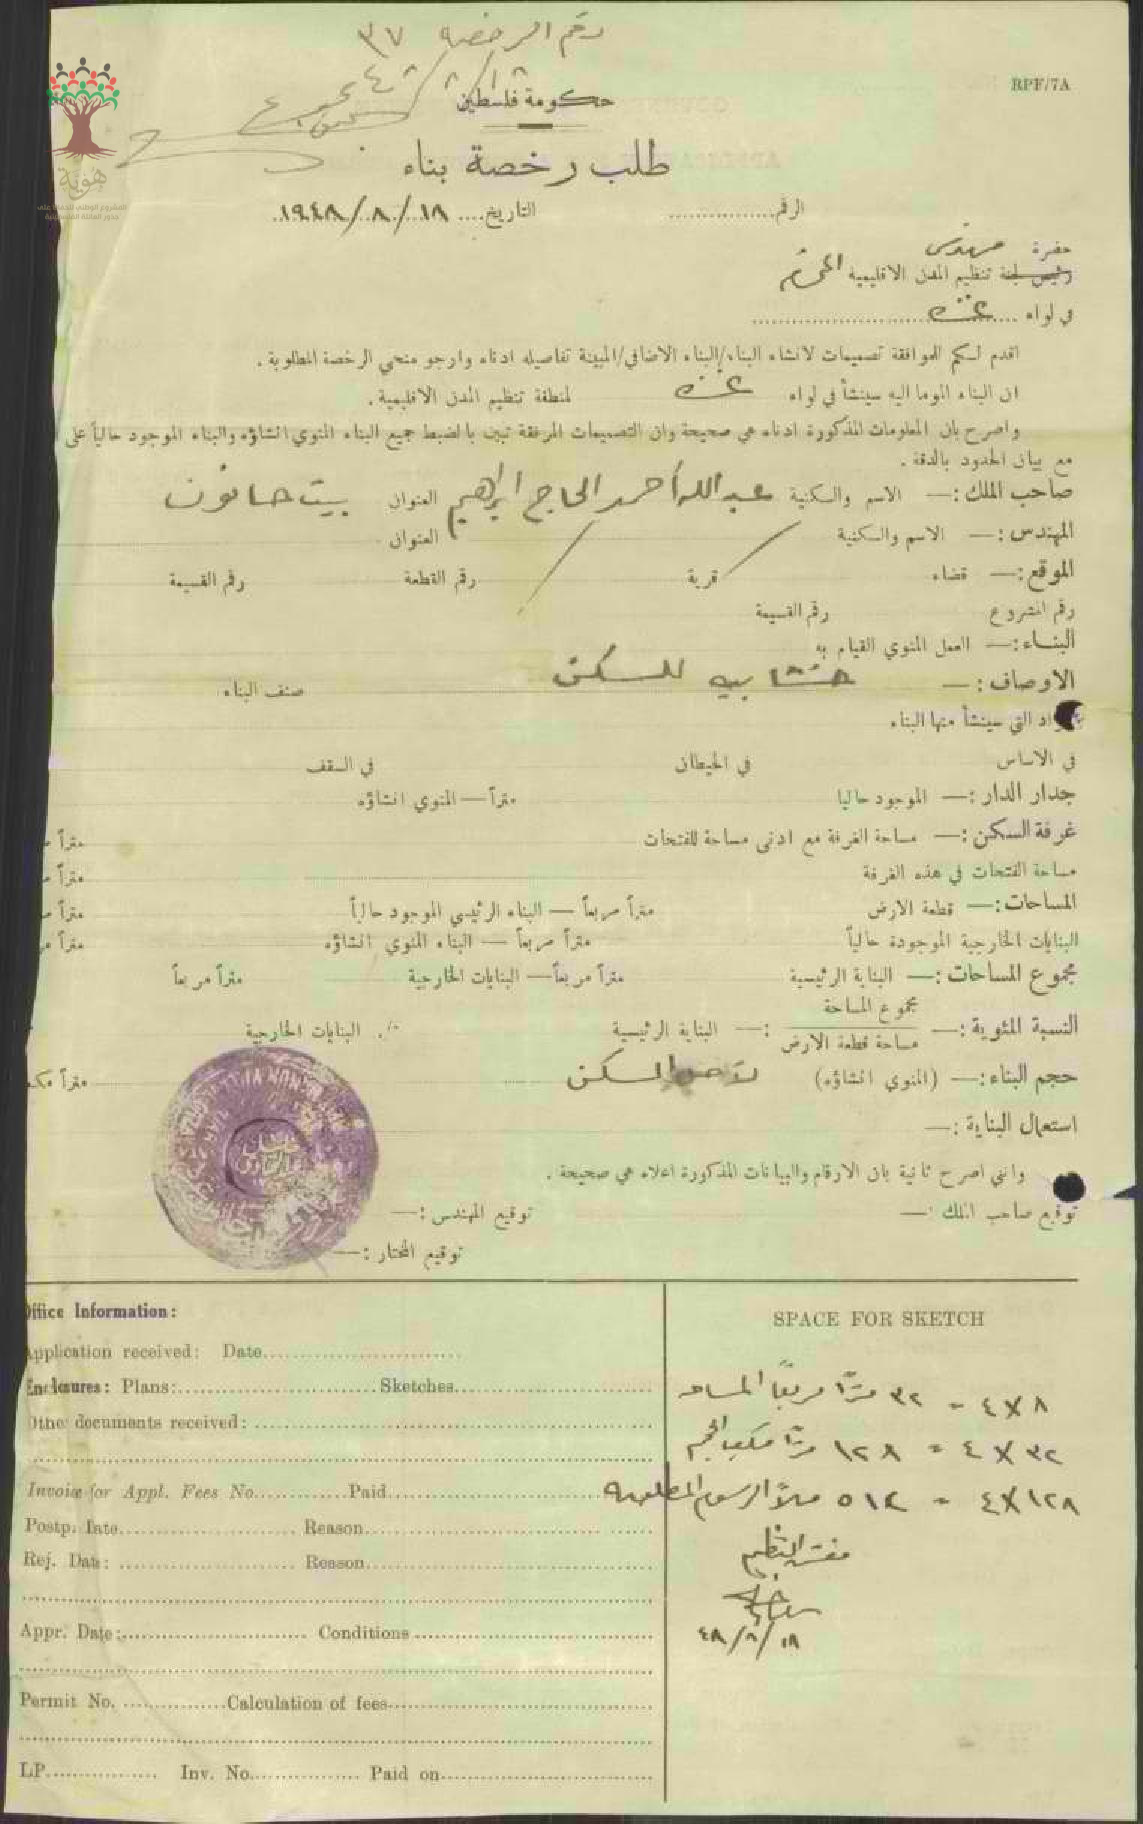 رقم الرخصة ٣٧
RPF/7A
حكومة فلسطين
هوية
طلب رخصة بناء
الرقم................ التاريخ.... ١٨/٨/١٩٤٨
حضرة مهندس
رئيس لجنة تنظيم المدن الاقليمية المحترم
في لواء غزة
اقدم لكم للموافقة تصميمات لانشاء البناء/البناء الاضافي/المبينة تفاصيله ادناه وارجو منحي الرخصة المطلوبة .
ان البناء الموما اليه سينشأ في لواء غزة لمنطقة تنظيم المدن الاقليمية .
واصرح بان المعلومات المذكورة ادناه هي صحيحة وان التصميمات المرفقة تبين بالضبط جميع البناء المنوي انشاؤه والبناء الموجود حالياً على
مع بيان الحدود بالدقة .
صاحب الملك :— الاسم والكنية عبدالله أحمد الحاج ابراهيم العنوان بيت حانون
المهندس :— الاسم والكنية العنوان
الموقع :— قضاء قرية رقم القطعة رقم القسيمة
رقم المشروع رقم القسيمة
البناء :— العمل المنوي القيام به
الاوصاف :— خشابيه للسكن صنف البناء
واد التي سينشأ منها البناء
في الاساس في الحيطان في السقف
جدار الدار :— الموجود حاليا متراً — المنوي انشاؤه
غرفة السكن :— مساحة الغرفة مع ادنى مساحة للفتحات متراً م
مساحة الفتحات في هذه الغرفة متراً م
المساحات :— قطعة الارض متراً مربعاً — البناء الرئيسي الموجود حالياً متراً م
البنايات الخارجية الموجودة حالياً متراً مربعاً — البناء المنوي انشاؤه متراً مر
مجموع المساحات :— البناية الرئيسية متراً مربعاً — البنايات الخارجية متراً مربعاً
النسبة المئوية :— مجموع المساحة
مساحة قطعة الارض :— البناية الرئيسية ٠/٠ البنايات الخارجية
حجم البناء :— (المنوي انشاؤه) لاجل السكن متراً مك
استعمال البناية :—
وانني اصرح ثانية بان الارقام والبيانات المذكورة اعلاه هي صحيحة .
توقيع صاحب الملك :— توقيع المهندس :—
توقيع المختار :—
Office Information:
Application received: Date
Enclosures: Plans: Sketches
Othe documents received:
Invoice for Appl. Fees No. Paid
Postp. Date Reason
Rej. Date: Reason
Appr. Date: Conditions
Permit No. Calculation of fees
LP. Inv. No. Paid on
SPACE FOR SKETCH
٨ × ٤ = ٣٢ متراً مربعاً المساحه
٣٢ × ٤ = ١٢٨ متراً مكعب الحجم
١٢٨ × ٤ = ٥١٢ ملاً الرسوم المطلوبه
مفتش التنظيم
١٨/٨/٤٨